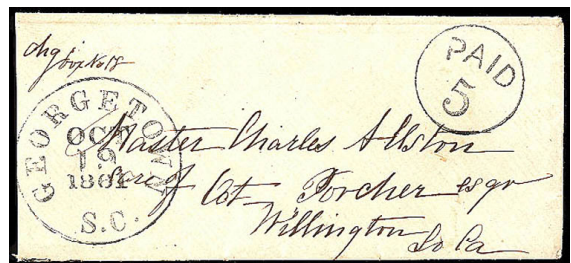 chg Box No 18
PAID
5
GEORGETOWN
OCT
19
1861
S.C.
Master Charles Allston
Care of Col. Porcher esqr
Willington
So Ca